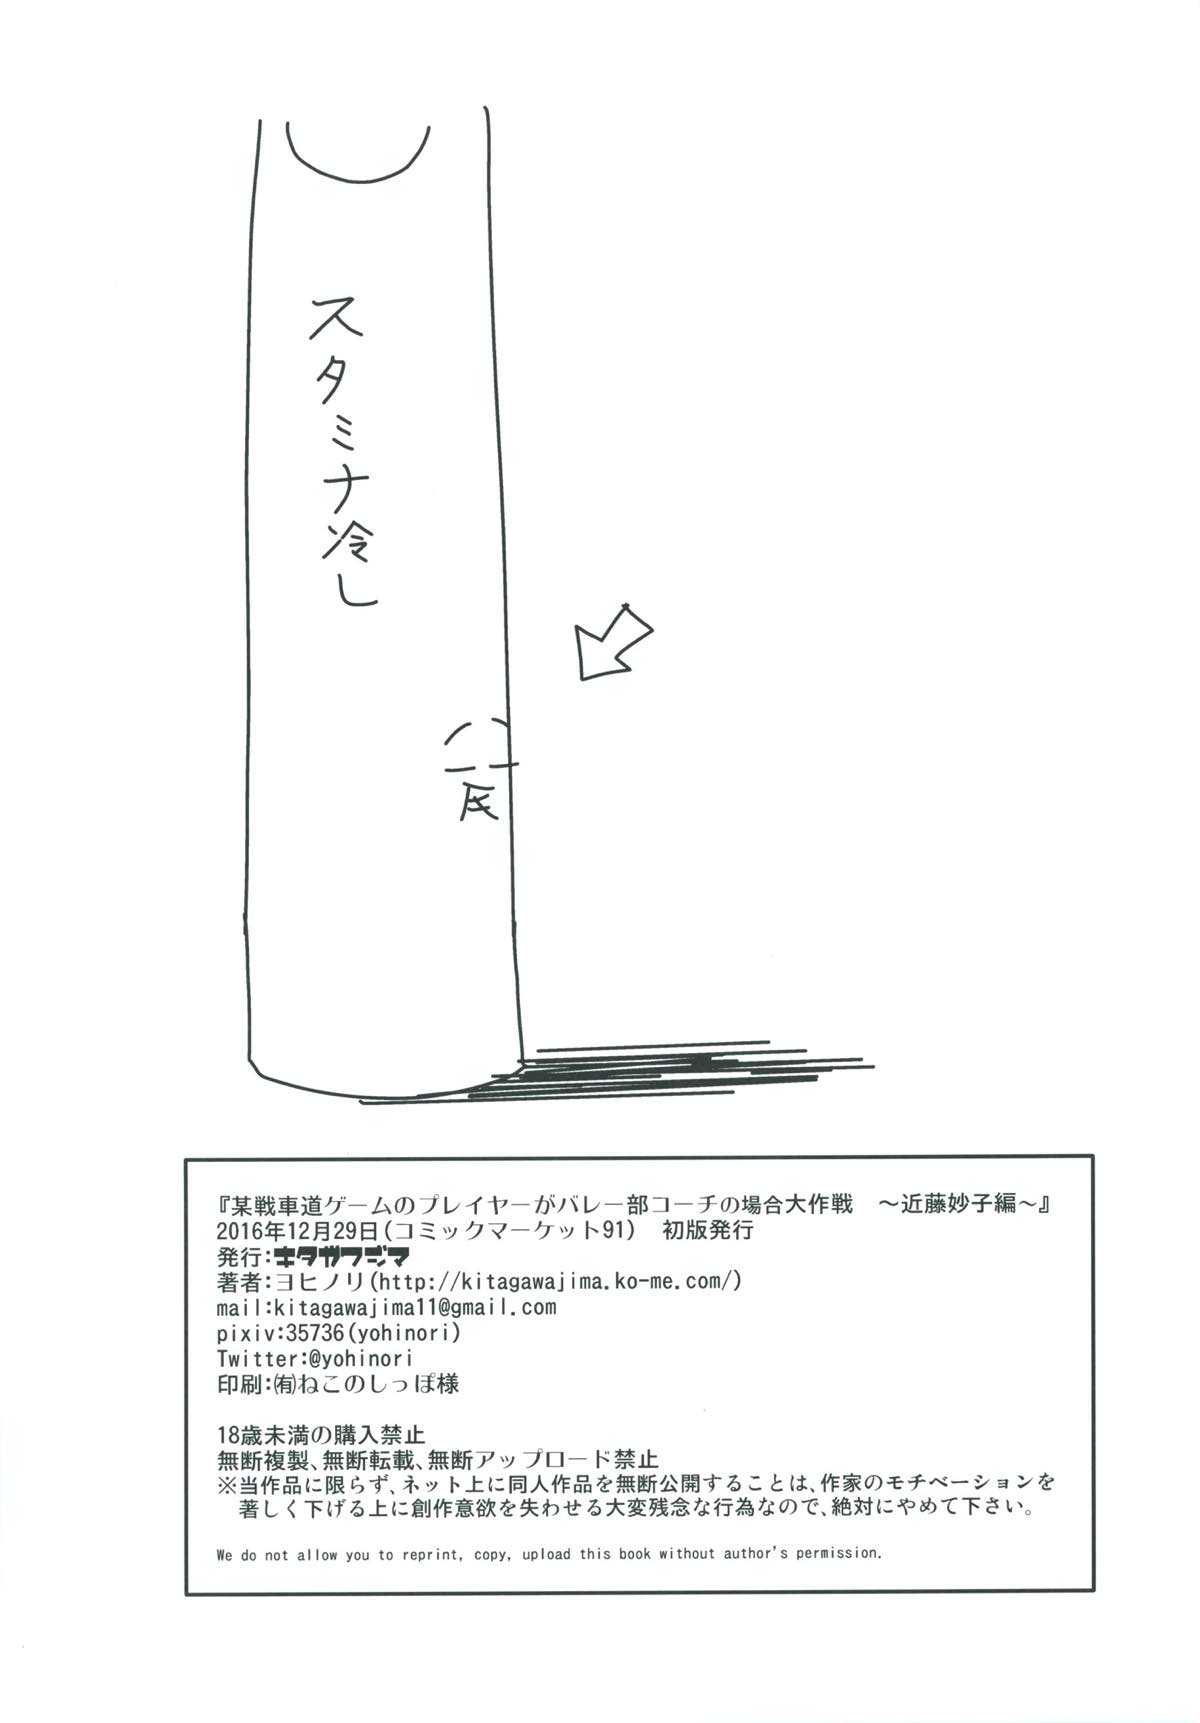 スタミナ冷し
『某戦車道ゲームのプレイヤーがバレー部コーチの場合大作戦　～近藤妙子編～』
2016年12月29日(コミックマーケット91)　初版発行
発行:キタガワジマ
著者:ヨヒノリ(http://kitagawajima.ko-me.com/)
mail:kitagawajima11@gmail.com
pixiv:35736(yohinori)
Twitter:@yohinori
印刷:㈲ねこのしっぽ様
18歳未満の購入禁止
無断複製、無断転載、無断アップロード禁止
※当作品に限らず、ネット上に同人作品を無断公開することは、作家のモチベーションを
著しく下げる上に創作意欲を失わせる大変残念な行為なので、絶対にやめて下さい。
We do not allow you to reprint, copy, upload this book without author's permission.